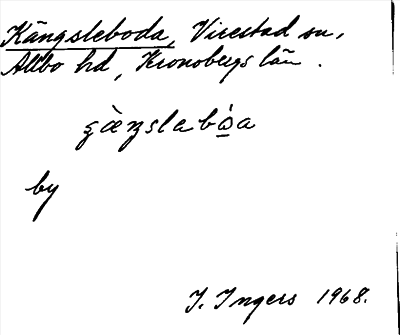 Kängsleboda, Virestad sn,
Allbo hd, Kronobergs län.
by
I. Ingers 1968.